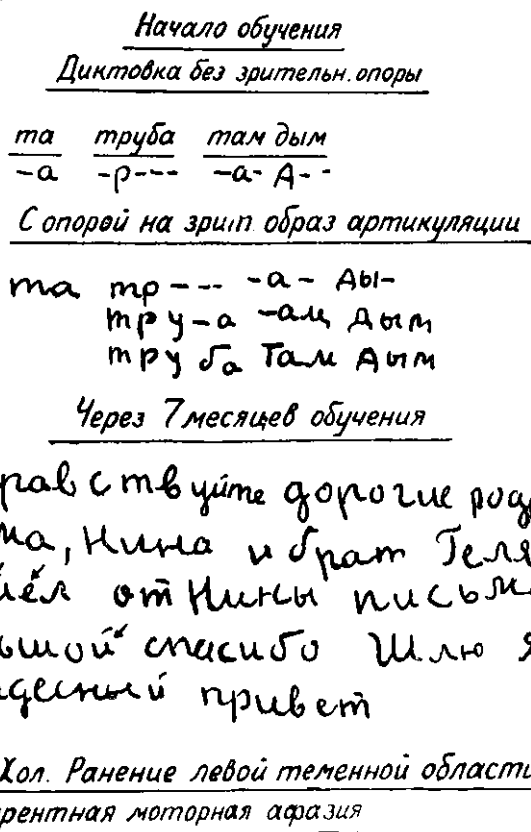 Начало обучения
Диктовка без зрительн. опоры
та труба там дым
-а -р--- -а- А--
С опорой на зрит образ артикуляции
та тр--- -а- ды-
тру-а -ам дым
труба Там дым
Через 7 месяцев обучения
равствуйте дорогие род
ма, Нина и брат Геля
от Нины письм
ьшой спасибо Шлю я
десный привет
Хол. Ранение левой теменной област
рентная моторная афазия